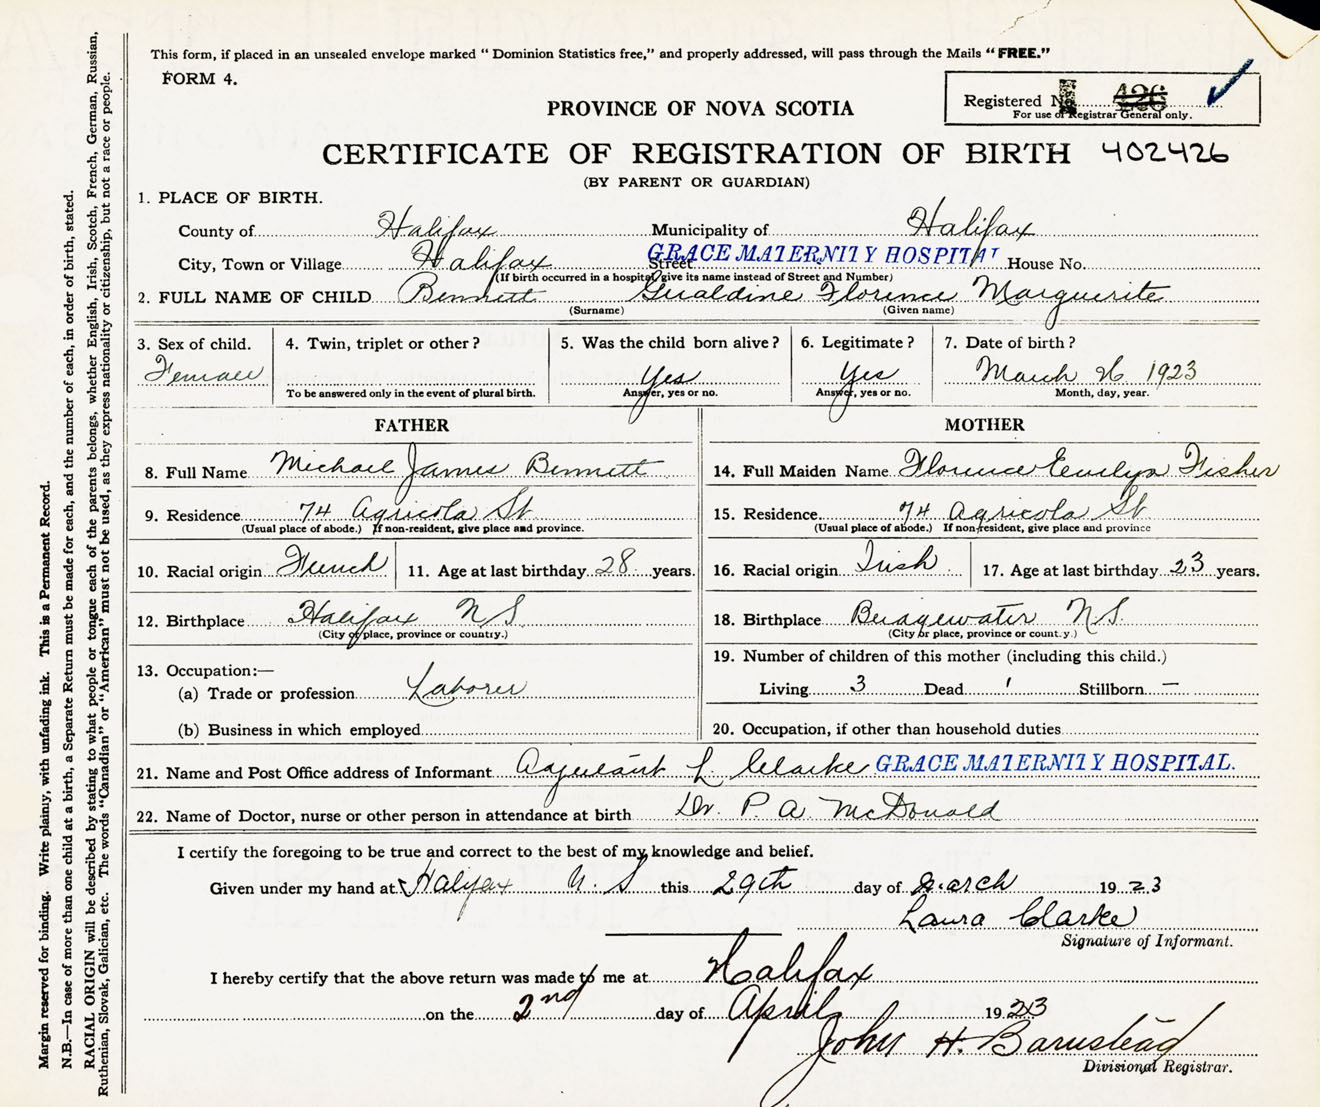 This form, if placed in an unsealed envelope marked " Dominion Statistics free," and properly addressed, will pass through the Mails "FREE."
FORM 4.
Registered No. 426
For use of Registrar General only.
PROVINCE OF NOVA SCOTIA
CERTIFICATE OF REGISTRATION OF BIRTH 402426
(BY PARENT OR GUARDIAN)
1. PLACE OF BIRTH.
County of Halifax Municipality of Halifax
City, Town or Village Halifax Street GRACE MATERNITY HOSPITAL House No.
(If birth occurred in a hospital, give its name instead of Street and Number)
2. FULL NAME OF CHILD Bennett Geraldine Florence Marguerite
(Surname) (Given name)
3. Sex of child. Female
4. Twin, triplet or other?
To be answered only in the event of plural birth.
5. Was the child born alive? Yes
Answer, yes or no.
6. Legitimate? Yes
Answer, yes or no.
7. Date of birth? March 26 1923
Month, day, year.
FATHER
8. Full Name Michael James Bennett
9. Residence 74 Agricola St
(Usual place of abode.) If non-resident, give place and province.
10. Racial origin French 11. Age at last birthday 28 years.
12. Birthplace Halifax N S.
(City or place, province or country.)
13. Occupation:—
(a) Trade or profession Laborer
(b) Business in which employed
MOTHER
14. Full Maiden Name Florence Evelyn Fisher
15. Residence 74 Agricola St
(Usual place of abode.) If non-resident, give place and province
16. Racial origin Irish 17. Age at last birthday 23 years.
18. Birthplace Bridgewater N S.
(City or place, province or county.)
19. Number of children of this mother (including this child.)
Living 3 Dead 1 Stillborn —
20. Occupation, if other than household duties
21. Name and Post Office address of Informant Adjutant L. Clarke GRACE MATERNITY HOSPITAL.
22. Name of Doctor, nurse or other person in attendance at birth Dr. P. A. McDonald
I certify the foregoing to be true and correct to the best of my knowledge and belief.
Given under my hand at Halifax N. S this 29th day of March 1923
Laura Clarke
Signature of Informant.
I hereby certify that the above return was made to me at Halifax
on the 2nd day of April 1923
John H. Barnstead
Divisional Registrar.
Margin reserved for binding. Write plainly, with unfading ink. This is a Permanent Record.
N.B.—In case of more than one child at a birth, a Separate Return must be made for each, and the number of each, in order of birth, stated.
RACIAL ORIGIN will be described by stating to what people or tongue each of the parents belongs, whether English, Irish, Scotch, French, German, Russian,
Ruthenian, Slovak, Galician, etc. The words "Canadian" or "American" must not be used, as they express nationality or citizenship, but not a race or people.